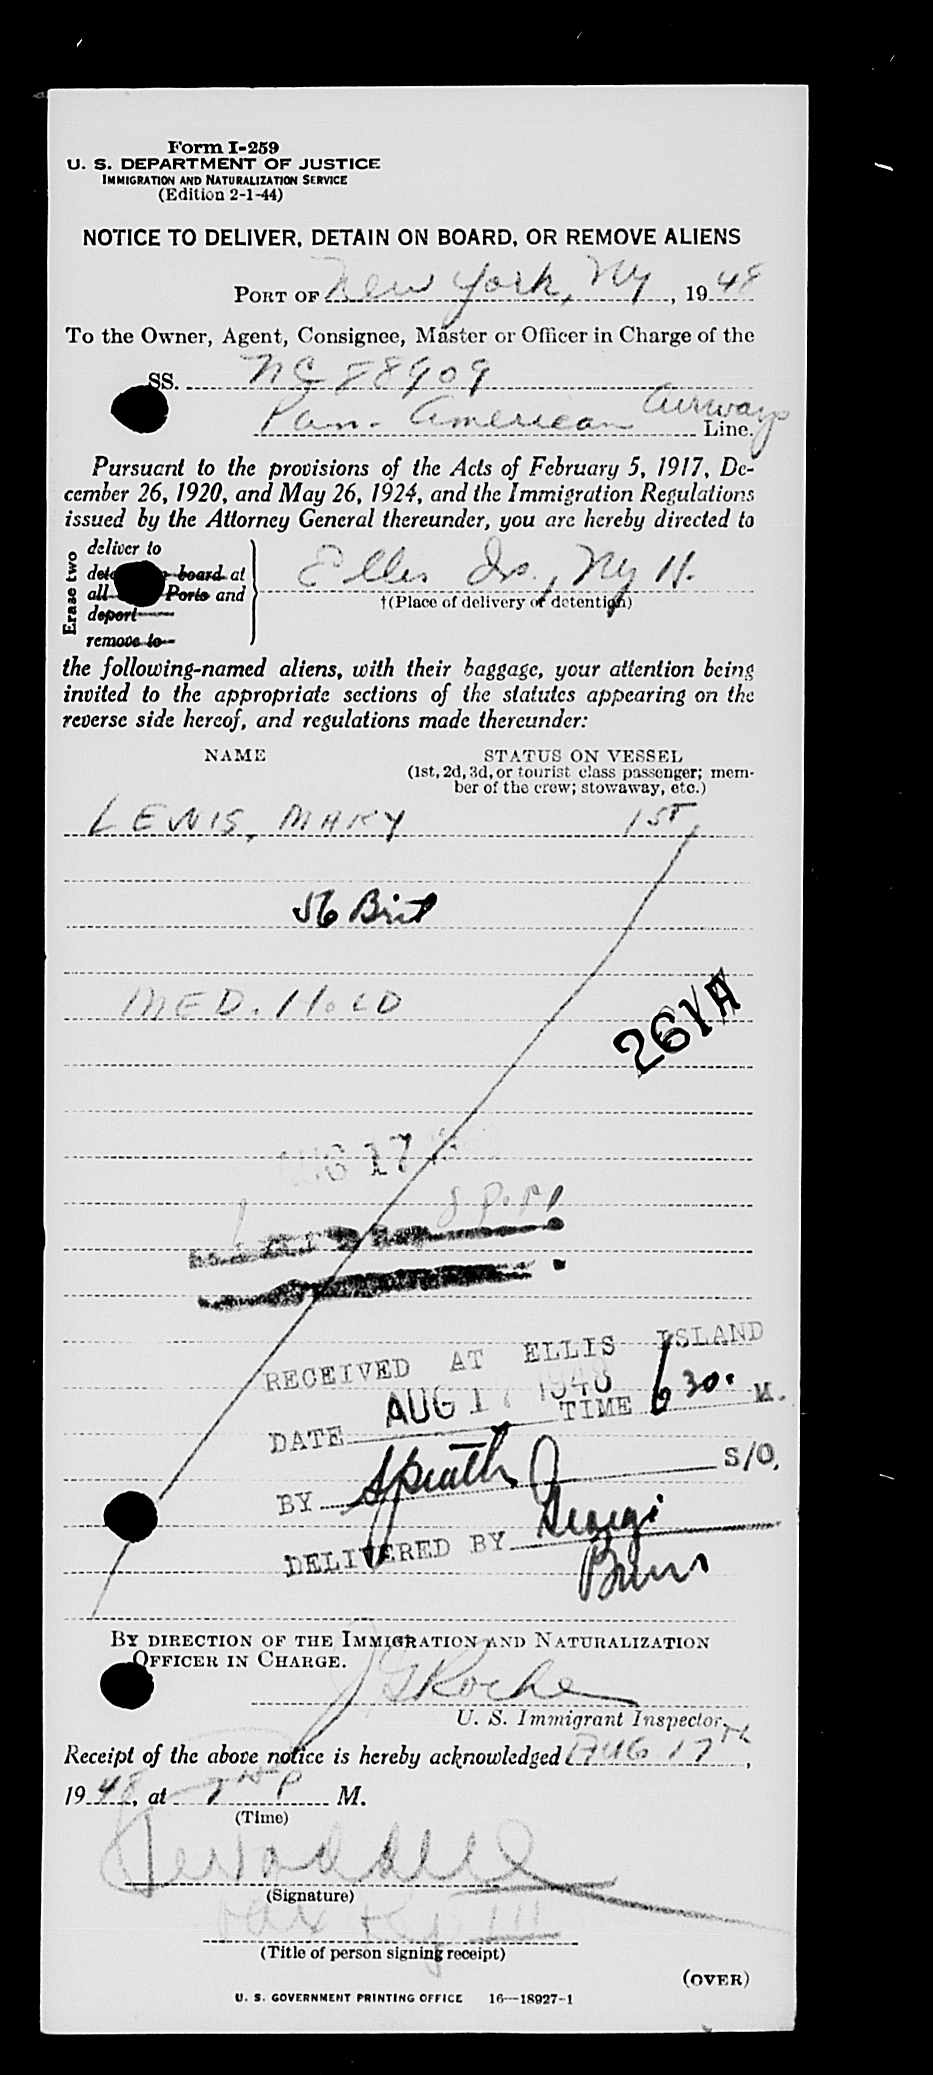 Form I-259
U. S. DEPARTMENT OF JUSTICE
IMMIGRATION AND NATURALIZATION SERVICE
(Edition 2-1-44)
NOTICE TO DELIVER, DETAIN ON BOARD, OR REMOVE ALIENS
PORT OF New York, Ny, 1948
To the Owner, Agent, Consignee, Master or Officer in Charge of the
SS. NC 88909
Pan. American Airways Line.
Pursuant to the provisions of the Acts of February 5, 1917, De-
cember 26, 1920, and May 26, 1924, and the Immigration Regulations
issued by the Attorney General thereunder, you are hereby directed to
Erase two
deliver to
board at
all Ports and
deport
remove to
Ellis Is., Ny H.
†(Place of delivery or detention)
the following-named aliens, with their baggage, your attention being
invited to the appropriate sections of the statutes appearing on the
reverse side hereof, and regulations made thereunder:
NAME STATUS ON VESSEL
(1st, 2d, 3d, or tourist class passenger; mem-
ber of the crew; stowaway, etc.)
LEWIS, MARY 1ST
56 Brit
MED. HOLD
261A
AUG 17
RECEIVED AT ELLIS ISLAND
DATE AUG 17 1948 TIME 6 30. M.
BY Sprath S/O.
DELIVERED BY George
By direction of the Immigration and Naturalization
Officer in Charge.
JG Roche
U. S. Immigrant Inspector.
Receipt of the above notice is hereby acknowledged AUG 17th,
1948, at P M.
(Time)
(Signature)
(Title of person signing receipt)
(OVER)
U. S. GOVERNMENT PRINTING OFFICE 16—18927-1